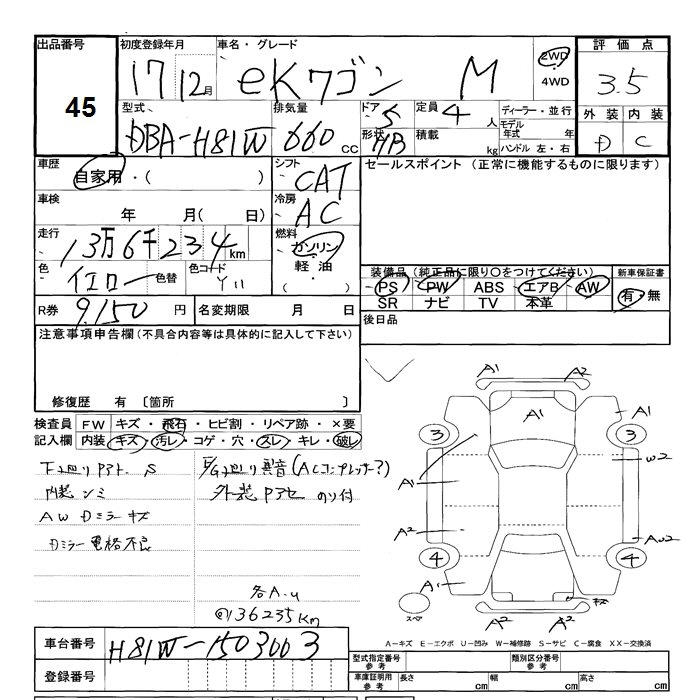 出品番号
45
初度登録年月
17 12月
車名・グレード
eKワゴン M
2WD
4WD
評価点
3.5
外装 内装
D C
型式
DBA-H81W
排気量
660 CC
ドア 5
形状 HB
定員 4 人
積載 kg
ディーラー・並行
モデル年式 年
ハンドル 左・右
車歴
自家用・( )
シフト
CAT
セールスポイント (正常に機能するものに限ります)
車検
年 月( 日)
冷房
AC
走行
13万6千234km
燃料
ガソリン
軽油
( ・ )
色
イエロー 色替
色コード
Y11
装備品 (純正品に限り○をつけてください)
PS PW ABS エアB AW
SR ナビ TV 本革
新車保証書
有・無
R券 9,150 円
名変期限 月 日
後日品
注意事項申告欄(不具合内容等は具体的に記入して下さい)
修復歴 有 〔箇所 〕
検査員
記入欄
FW キズ・飛石・ヒビ割・リペア跡・×要
内装 キズ・汚レ・コゲ・穴・スレ・キレ・破レ
下廻りアト S
内装シミ
AW Dミラーキズ
Dミラー電格不良
E/G廻り異音(ACコンプレッサー?)
外装 のり付
各A.U
@136235km
A1 A2
A1
A1
3 3
A1
W2
A2
AU2
4 4
A1
キズ
スペア
A2 A2
A-キズ E-エクボ U-凹み W-補修跡 S-サビ C-腐食 XX-交換済
車台番号
H81W-1503003
登録番号
型式指定番号 参考
類別区分番号 参考
車庫証明用 参考
長さ cm
幅 cm
高さ cm